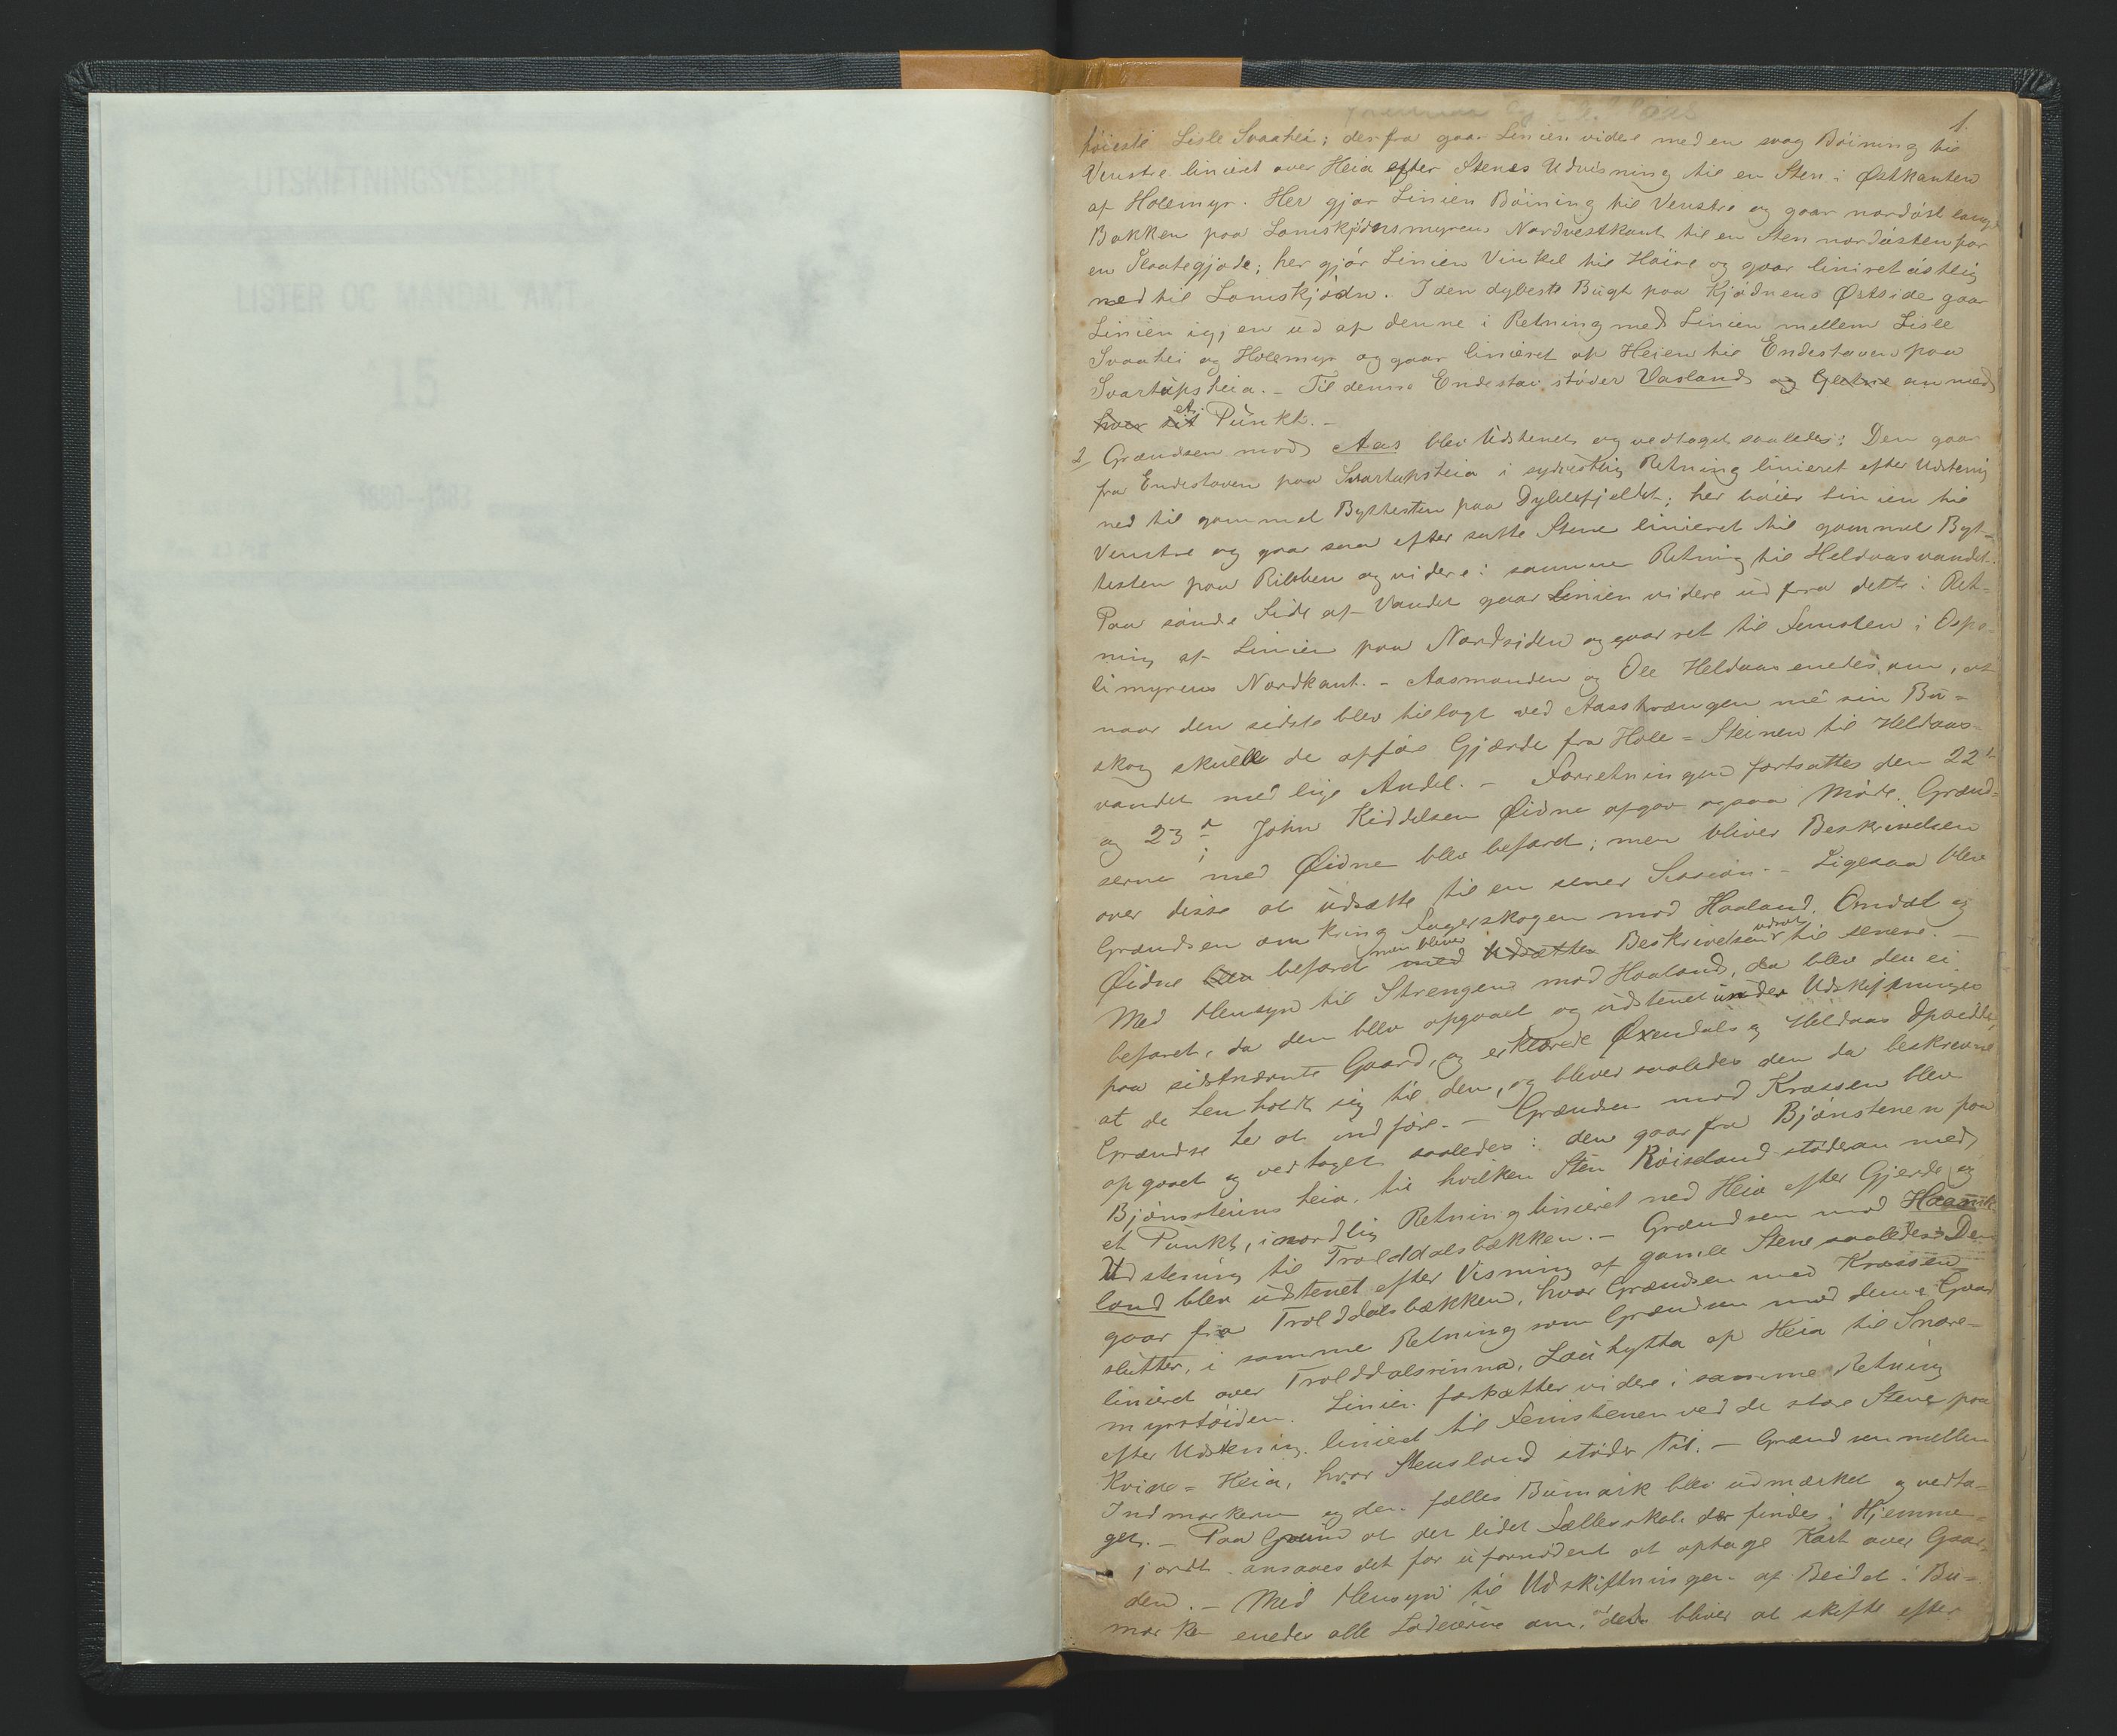 1.
høieste Lisle Svaahei; derfra gaar Linien videre med en svag Bøining til
Venstre liniert over Heia efter Stenes Udvisning til en Sten i Østkanten
af Holemyr. Her gjør Linien Bøining til Venstre og gaar nordøst langs
Bakken paa Lomskjødnsmyrens Nordvestkant til en Sten nordøsten for
en Slaategjøde; her gjør Linien Vinkel til Høire og gaar liniret østlig
ned til Lomskjødn. I den dybeste Bugt paa Kjødnens Østside gaar
Linien igjen ud af denne i Retning med Linien mellem Lisle
Svaahei og Holemyr og gaar linieret op Heien til Endestaven paa
Svartüpsheia. – Til denne Endestav støder Vasland og Gletne an med
hver sit et Pünkt. –
2/ Grændsen mod Aas blev Udstenet og vedtaget saaledes: Den gaar
fra Endestaven paa Svartupsheia i sydvestlig Retning linieret efter Udstening
ned til gammel Byttesten paa Dyblefjeldet; her bøier Linien til
Venstre og gaar saa efter satte Stene linieret til gammel Byt-
testen paa Ribben og videre i samme Retning til Heldaasvandet.
Paa søndre Side af Vandet gaar Linien videre ud fra dette i Ret-
ning af Linien paa Nordsiden og gaar ret til Femsten i Ospe-
limyrens Nordkant. – Aasmanden og Ole Heldaas enedes om, at
naar den sidste blev tillagt ved Aasstrængen mé sin Bü-
skog skulle de opføre Gjærde fra Hole-Steinen til Heldaas-
vandet med lige Andel. – Forretningen fortsattes den 22de
og 23de John Kiddelsen Øidne opgav ogsaa Møde. Grænd-
serne med Øidne blev befaret; men bliver Beskrivelsen
over disse at üdsætte til en sener Session. – Ligesaa blev
Grændsen omkring Fagerskogen mod Haaland, Omdal og
Øidne blev befaret men bliver med Udsættes Beskrivelsen udsat til senere. –
Med Hensyn til Strengen mod Haaland, da blev den ei
befaret, da den blev opgaaet og üdstenet ünder Udskiftningen
paa sidstnævnte Gaard, og erklærede Øxendals og Heldaas Opsidde,
at de henholdt sig til den, og bliver saaledes den da beskrevne
Grændse her at indføre. – Grændsen mod Krossen blev
opgaaet og vedtaget saaledes: den gaar fra Bjønstenen paa
Bjønssteinsheia, til hvilken Sten Røiseland støder an med
et Pünkt, i nordlig Retning linieret ned Heia efter Gjerde og
Udstening til Trolddalsbækken. – Grændsen mod Haaniк
land blev üdstenet efter Visning af gamle Stene saaledes: Den
gaar fra Trolddalsbækken, hvor Grændsen med Krossen
slutter, i samme Retning som Grændsen mod denne Gaard
linieret over Trolddalsrinna, Laühytta op Heia til Snare-
myrstøiden. Linien fortsætter videre i samme Retning
efter Udstening linieret til Femstenen ved de store Stene paa
Kvine-Heia, hvor Stensland støder til. – Grændsen mellem
Indmarken og den fælles Bümark blev üdmærket og vedta-
get. – Paa Grund at det lidet Fællesskab der findes i Hjemme-
jordt. ansaaes det for üfornødent at optage Kart over Gaar-
den. – Med Hensyn til Udskiftningen af Beidet i Bu-
marken enedes alle Lodeierne om, at det bliver at skifte efter